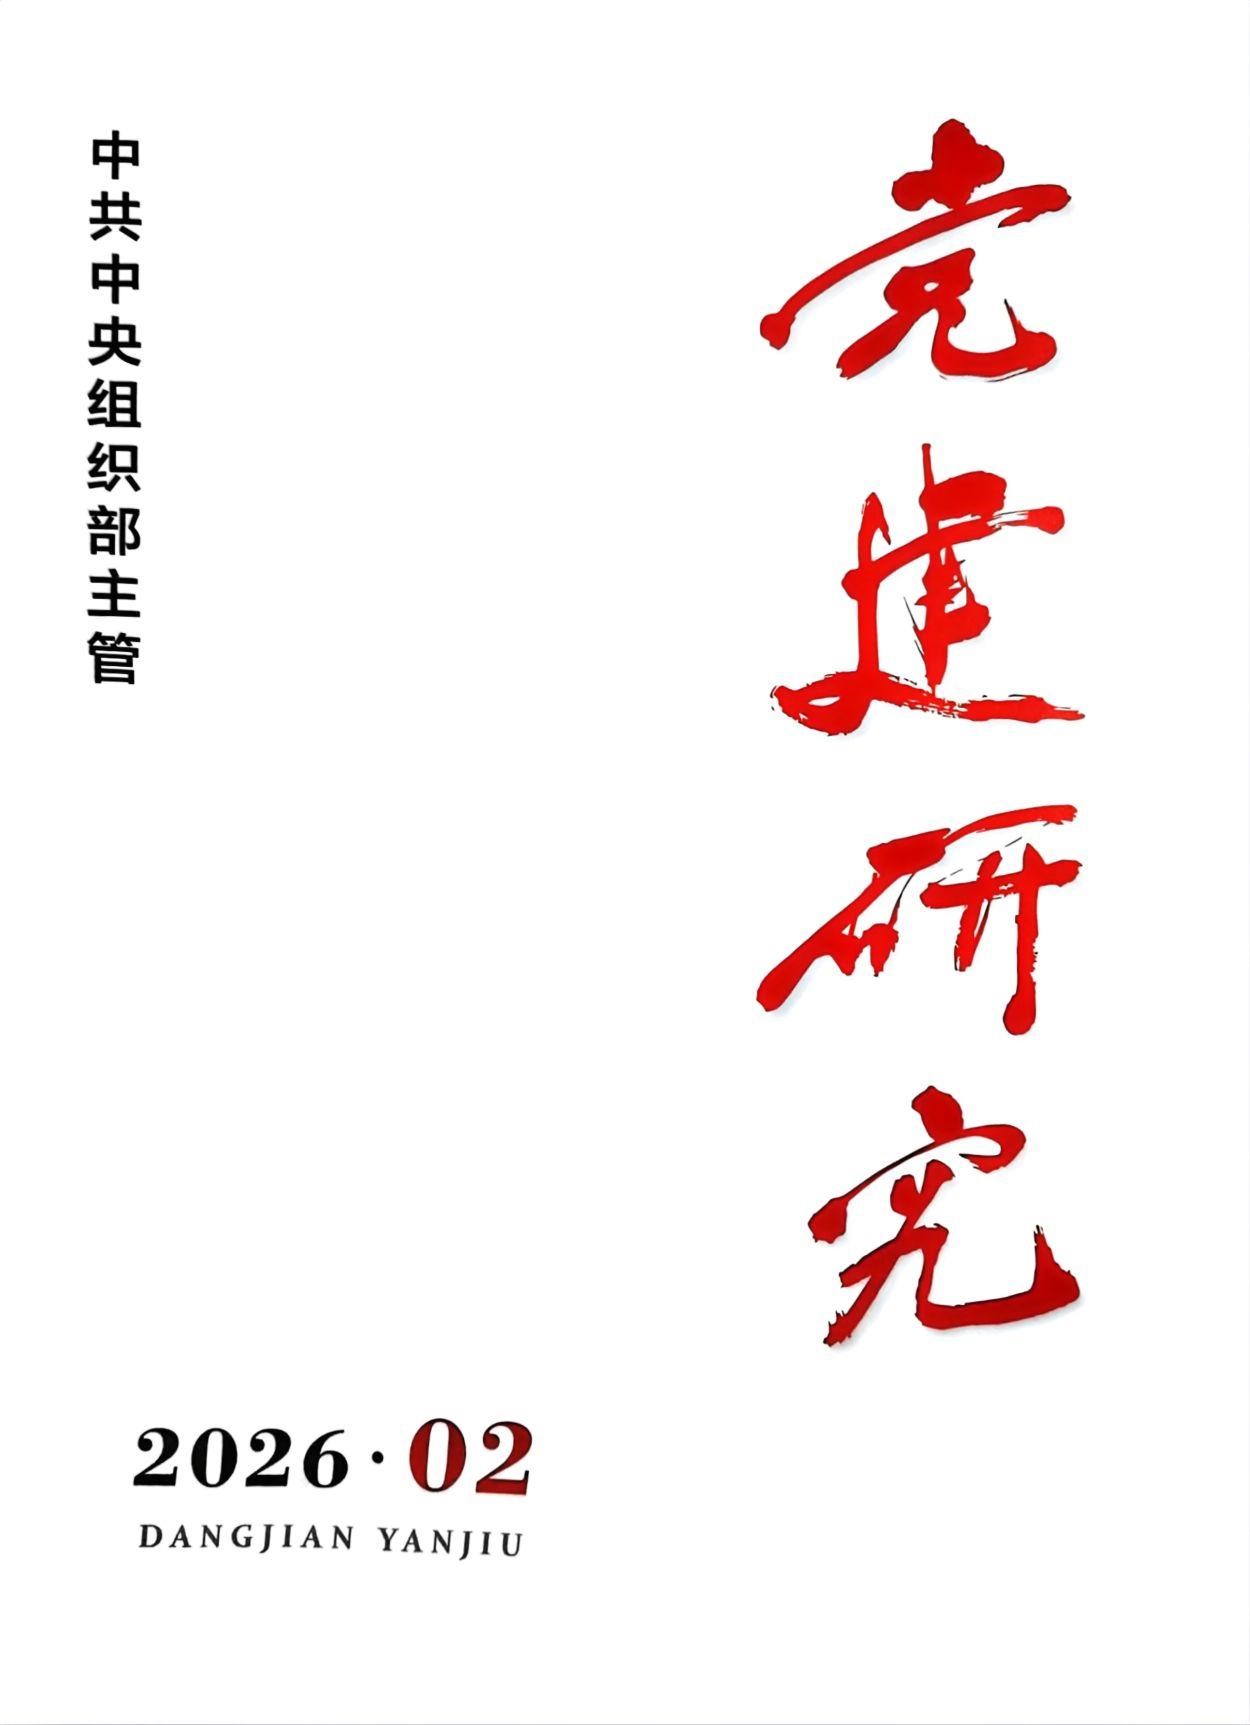 党建研究
中共中央组织部主管
2026·02
DANGJIAN YANJIU